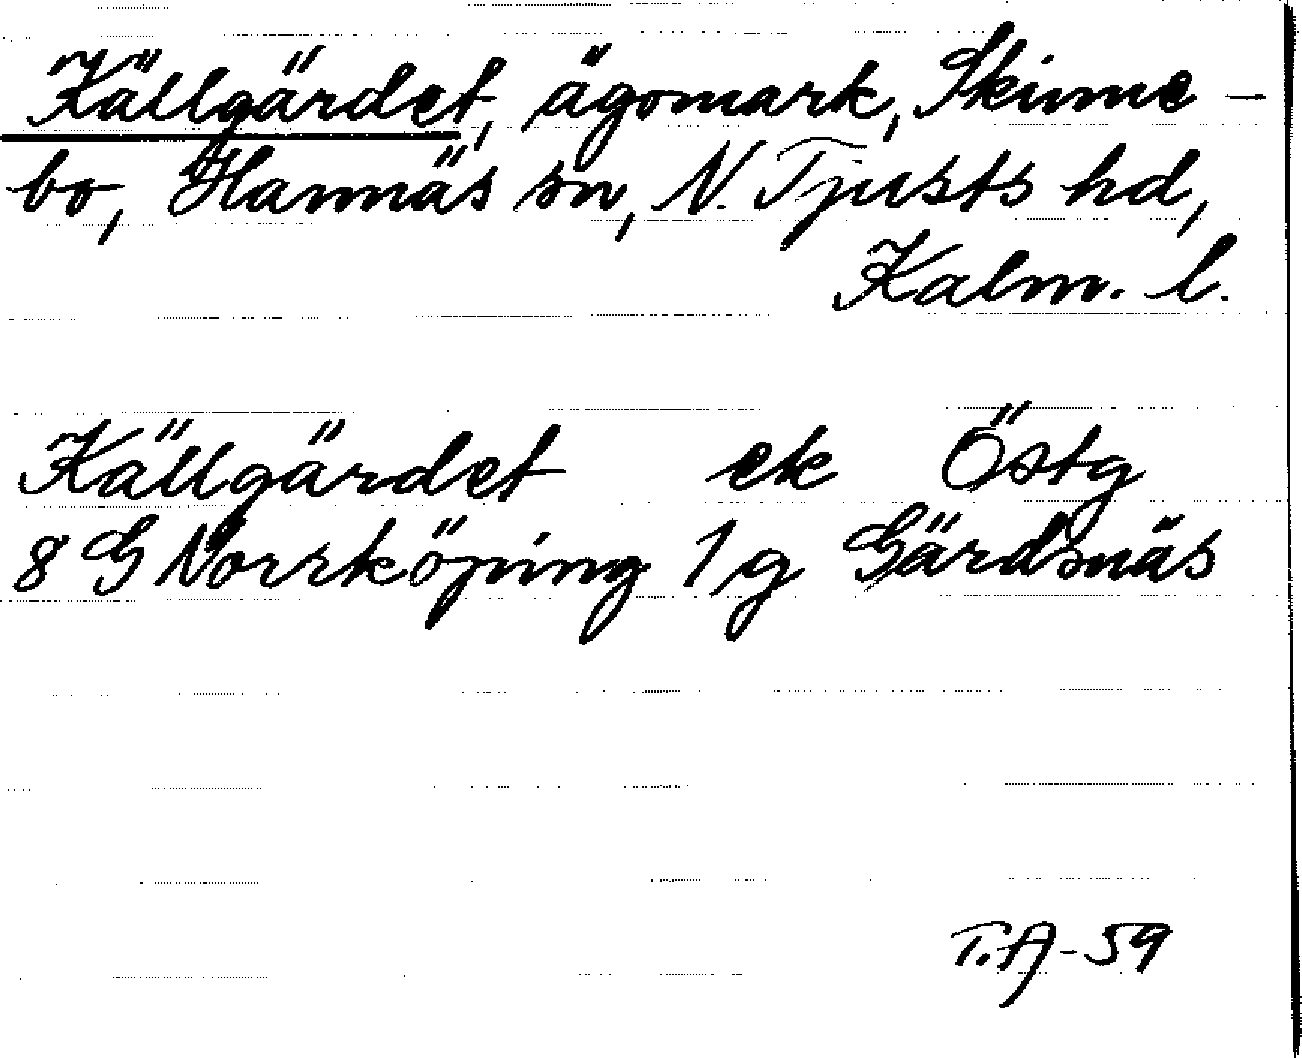 Källgärdet, ägomark, Skinne-
bo, Hannäs sn, N. Tjusts hd,
Kalm. l.
Källgärdet ek Östg
8 G Norrköping 1 g Gärdsnäs
T.A-59